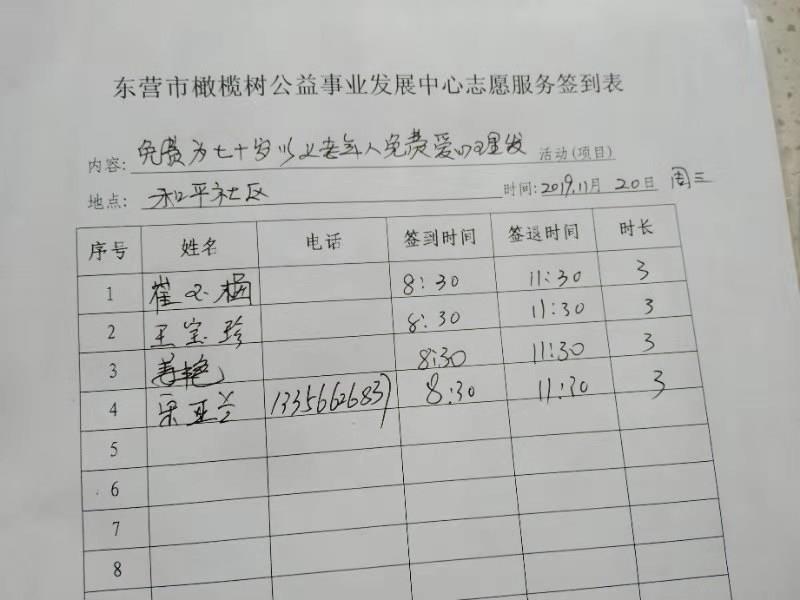 东营市橄榄树公益事业发展中心志愿服务签到表
内容: 免费为七十岁以上老年人免费爱心理发 活动(项目)
地点: 和平社区 时间: 2019.11月 20日 周三
序号 姓名 电话 签到时间 签退时间 时长
1 崔玉梅 8:30 11:30 3
2 王宝珍 8:30 11:30 3
3 姜艳 8:30 11:30 3
4 宋亚兰 13356626837 8:30 11:30 3
5
6
7
8